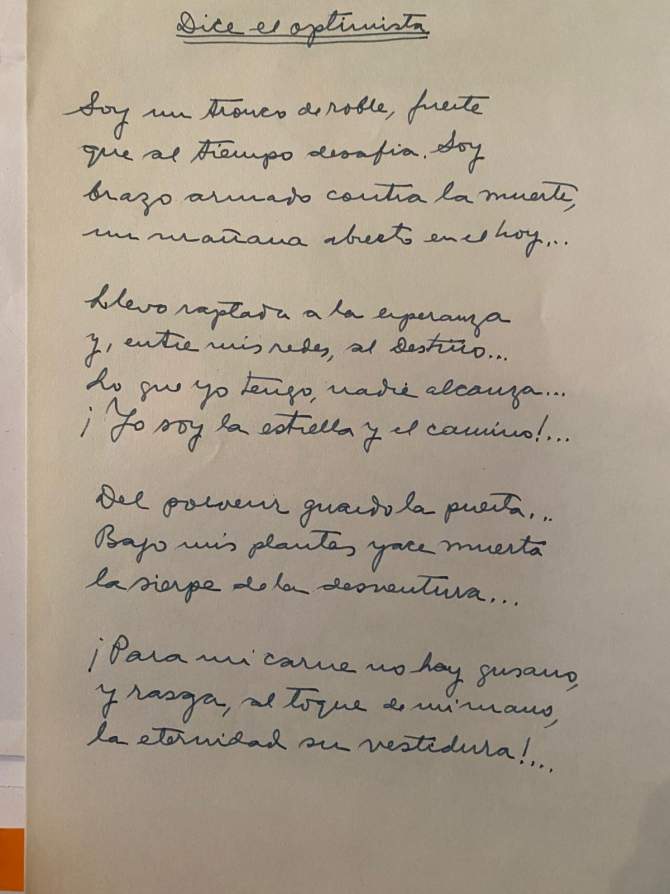 Dice el optimista
Soy un tronco de roble, fuerte
que al tiempo desafia. Soy
brazo armado contra la muerte,
un mañana abierto en el hoy...
Llevo raptada a la esperanza
y, entre mis redes, al Destino...
Lo que yo tengo, nadie alcanza...
¡Yo soy la estrella y el camino!...
Del porvenir guardo la puerta...
Bajo mis plantas yace muerta
la sierpe de la desventura...
¡Para mi carne no hay gusano,
y rasga, al toque de mi mano,
la eternidad su vestidura!...